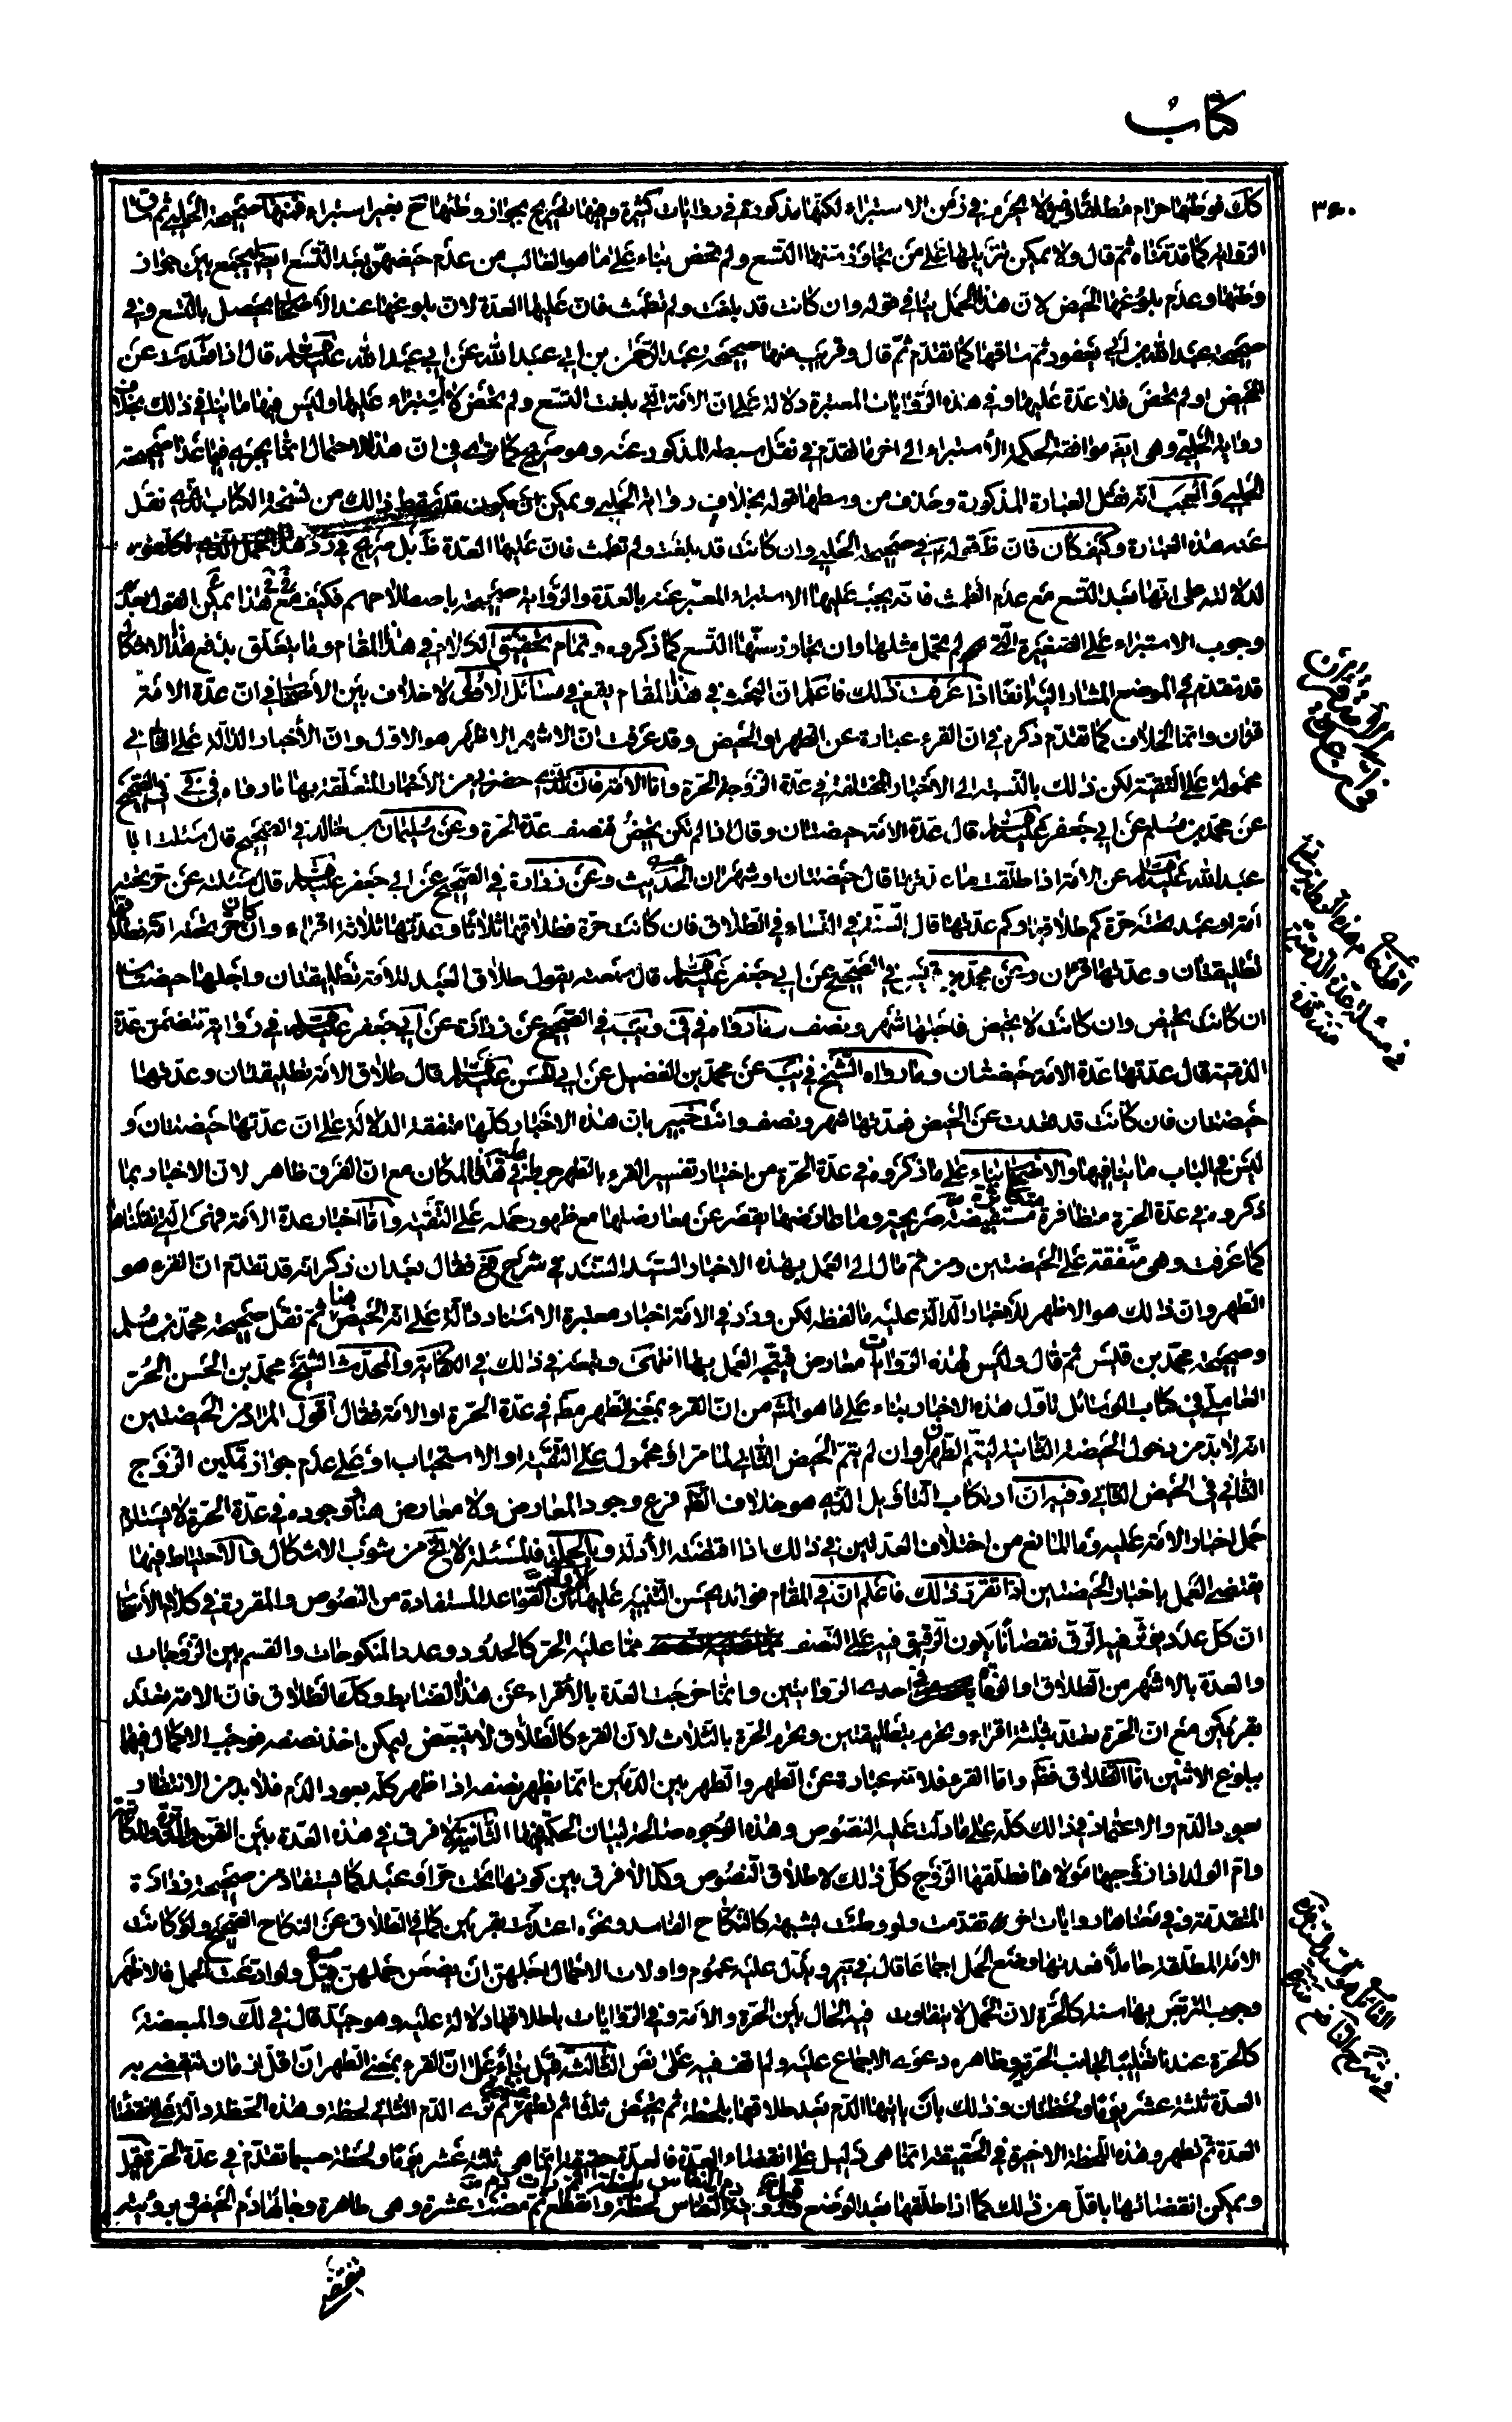 كتاب
٣٤٠
كك فوطئها حرام مطلقا في زمن الاستبراء لكنها مذكورة في روايات كثيرة وفيها تصريح بجواز وطئها ح بغير استبراء فمنها صحيحة الحلبي ثم ساق
الرواية كما قدمناه ثم قال ولا يمكن تنزيلها على من تجاوز سنها التسع ولم تحض بناء على ما هو الغالب من عدم حيضهن بعد التسع ليجمع بين جواز
وطئها وعدم بلوغها الحيض لان هذا الحمل ينافي قوله وان كانت قد بلغت ولم تطمث فان عليها العدة لان بلوغها عند الأصحاب يحصل بالتسع وفي
صحيحة عبد الله بن أبي يعفور ثم ساقها كما تقدم ثم قال وقريب منها صحيحة عبد الرحمن بن ابي عبد الله عن ابي عبد الله عليه السلام قال اذا قعدت عن
المحيض او لم تحض فلا عدة عليها وفي هذه الروايات المعتبرة دلالة على ان الامة التي بلغت التسع ولم تحض لا استبراء عليها وليس فيها ما ينافي ذلك بخلاف
رواية الحلبي وهي ايضا موافقة لحكمة الاستبراء الى اخر ما تقدم في نقل سبطه المذكور عنه وهو صريح كما ترى في ان هذا الاحتمال انما يجري فيما عدا صحيحة
الحلبي والعجب انه نقل العبارة المذكورة وحذف من وسطها قوله بخلاف رواية الحلبي ويمكن ان يكون قد سقط ذلك من نسخة الكتاب الذي نقل
عنه هذه العبارة وكيف كان فان ظ قوله في صحيحة الحلبي وان كانت قد بلغت ولم تطمث فان عليها العدة ظ بل صريح في رد هذا الحمل
لدلالته على انها بعد التسع مع عدم الطمث فانه يجب عليها الاستبراء المعبر عنه بالعدة والرواية صحيحة باصطلاحهم فكيف مع هذا يمكن القول بعدم
وجوب الاستبراء على الصغيرة التي لم تحمل مثلها وان تجاوز سنها التسع كما ذكروه وتمام تحقيق الكلام في هذا المقام وما يتعلق بدفع هذا الاشكال
قد تقدم في الموضع المشار اليه انفا اذا عرفت ذلك فاعلم ان البحث في هذا المقام يقع في مسائل الاولى لا خلاف بين الأصحاب في ان عدة الامة
قرئان وانما الخلاف كما تقدم ذكره في ان القرء عبارة عن الطهر او الحيض وقد عرفت ان الاشهر الاظهر هو الاول وان الأخبار الدالة على الثاني
محمولة على التقية لكن ذلك بالنسبة الى الاخبار المختلفة في عدة الزوجة الحرة واما الامة فان الذي حضرني من الأخبار المتعلقة بها ما رواه في في في الصحيح
عن محمد بن مسلم عن ابي جعفر عليه السلام قال عدة الامة حيضتان وقال اذا لم تكن تحيض فنصف عدة الحرة وعن سليمان بن خالد في الصحيح قال سئلت ابا
عبد الله عليه السلام عن الامة اذا طلقت ما عدتها قال حيضتان او شهران الحديث وعن زرارة في الصحيح عن ابي جعفر عليه السلام قال سئلته عن حر تحته
امة او عبد تحته حرة كم طلاقها وكم عدتها قال السنة في النساء في الطلاق فان كانت حرة فطلاقها ثلاثا وعدتها ثلاثة اقراء وان كان حر تحته امة فطلاقها
تطليقتان وعدتها قرئان وعن محمد بن قيس في الصحيح عن ابي جعفر عليه السلام قال سمعته يقول طلاق العبد للامة تطليقتان واجلها حيضتان
ان كانت تحيض وان كانت لا تحيض فاجلها شهر ونصف وما رواه في في ويب في الصحيح عن زرارة عن أبي جعفر عليه السلام في رواية تتضمن عدة
الذمية قال عدتها عدة الامة حيضتان وما رواه الشيخ في يب عن محمد بن الفضيل عن ابي الحسن عليه السلام قال طلاق الامة تطليقتان وعدتها
حيضتان فان كانت قد قعدت عن المحيض فعدتها شهر ونصف وانت خبير بان هذه الاخبار كلها متفقة الدلالة على ان عدتها حيضتان و
ليس في الباب ما ينافيها والاصحاب بناء على ما ذكروه في عدة الحرة من اختيار تفسير القرء بالطهر جروا عليه في هذا المكان مع ان الفرق ظاهر لان الاخبار بما
ذكروه في عدة الحرة متظافرة متكاثرة مستفيضة صريحة وما عارضها يقصر عن معارضتها مع ظهور حمله على التقية واما اخبار عدة الامة فهي التي نقلناها
كما عرفت وهي متفقة على الحيضتين ومن ثم مال الى العمل بهذه الاخبار السيد السند في شرح فع فقال بعد ان ذكر انه قد تقدم ان القرء هو
الطهر وان ذلك هو الاظهر للأخبار الدالة عليه ما لفظه لكن ورد في الامة اخبار معتبرة الاسناد دالة على انه الحيض هنا ثم نقل صحيحة محمد بن مسلم
وصحيحة محمد بن قيس ثم قال وليس لهذه الروايات معارض فيتجه العمل بها انتهى وتبعه في ذلك في الكفاية والمحدث الشيخ محمد بن الحسن الحر
العاملي في كتاب الوسائل تاول هذه الاخبار بناء على ما هو المشهور من ان القرء بمعنى الطهر مطلقا في عدة الحرة او الامة فقال اقول المراد من الحيضتين
انه لا بد من دخول الحيضة الثانية ليتم الطهران وان لم يتم الحيض الثاني لما مر او محمول على التقية او الاستحباب او على عدم جواز تمكين الزوج
الثاني في الحيض الثاني وفيه ان ارتكاب التاويل الذي هو خلاف الظ فرع وجود المعارض ولا معارض هنا ووجوده في عدة الحرة لا يستلزم
حمل اخبار الامة عليه وما المانع من اختلاف العدتين في ذلك اذا اقتضته الأدلة وبالجملة فالمسئلة لا تخ من شوب الاشكال والاحتياط فيها
يقتضي العمل باخبار الحيضتين اذا تقرر ذلك فاعلم ان في المقام فوائد يحسن التنبيه عليها الاولى من القواعد المستفادة من النصوص والمقررة في كلام الأصحاب
ان كل عدد يؤثر فيه الرق نقصانا يكون الرقيق فيه على النصف مما عليه الحر كالحدود وعدد المنكوحات والقسم بين الزوجات
والعدة بالاشهر من الطلاق والوفاة في احدى الروايتين وانما خرجت العدة بالأقراء عن هذا الضابط وكذا الطلاق فان الامة تعتد
بقرئين مع ان الحرة تعتد بثلثة اقراء وتحرم بتطليقتين وتحرم الحرة بالثلاث لان القرء كالطلاق لا يتبعض ليمكن اخذ نصفه فوجب الاكمال فيها
ببلوغ الاثنين اما الطلاق فظ واما القرء فلانه عبارة عن الطهر والطهر بين الدمين انما يظهر نصفه اذا ظهر كله بعود الدم فلا بد من الانتظار
بعود الدم والاعتماد في ذلك كله على ما دلت عليه النصوص وهذه الوجوه صالحة لبيان الحكمة فيها الثانية لا فرق في هذه العدة بين القن والمدبرة والمكاتبة
وام الولد اذا زوجها مولاها فطلقها الزوج كل ذلك لاطلاق النصوص وكذا لا فرق بين كونها تحت حر او عبد كما يستفاد من صحيحة زرارة
المتقدمة وفي معناها روايات اخر تقدمت ولو وطئت بشبهة كالنكاح الفاسد ونحوه اعتدت بقرئين كما في الطلاق عن النكاح الصحيح ولو كانت
الامة المطلقة حاملا فعدتها وضع الحمل اجماعا قاله في ير ويدل عليه عموم واولات الاحمال اجلهن ان يضعن حملهن قيل ولو ادعت الحمل فالاظهر
وجوب التربص بها سنة كالحرة لان الحمل لا يتفاوت فيه الحال بين الحرة والامة وفي الروايات باطلاقها دلالة عليه وهو جيد قال في لك والمبعضة
كالحرة عندنا تغليبا لجانب الحرية وظاهره دعوى الاجماع عليه ولم اقف فيه على نص الثالثة قيل بناء على ان القرء بمعنى الطهر ان اقل زمان تنقضي به
العدة ثلثة عشر يوما ولحظتان وذلك بان ياتيها الدم بعد طلاقها بلحظة ثم تحيض ثلثا ثم تطهر عشرا ثم ترى الدم الثاني لحظة وهذه اللحظة دالة على انقضاء
العدة ثم تطهر وهذه اللحظة الاخيرة في الحقيقة انما هي دليل على انقضاء العدة فالعدة حقيقة انما هي ثلثة عشر يوما ولحظة حسبما تقدم في عدة الحرة قيل
ويمكن انقضائها باقل من ذلك كما اذا طلقها بعد الوضع قبل دم النفاس بلحظة ثم رات دم النفاس لحظة وانقطع ثم مضت عشرة وهي طاهرة وجائها دم الحيض برؤيته